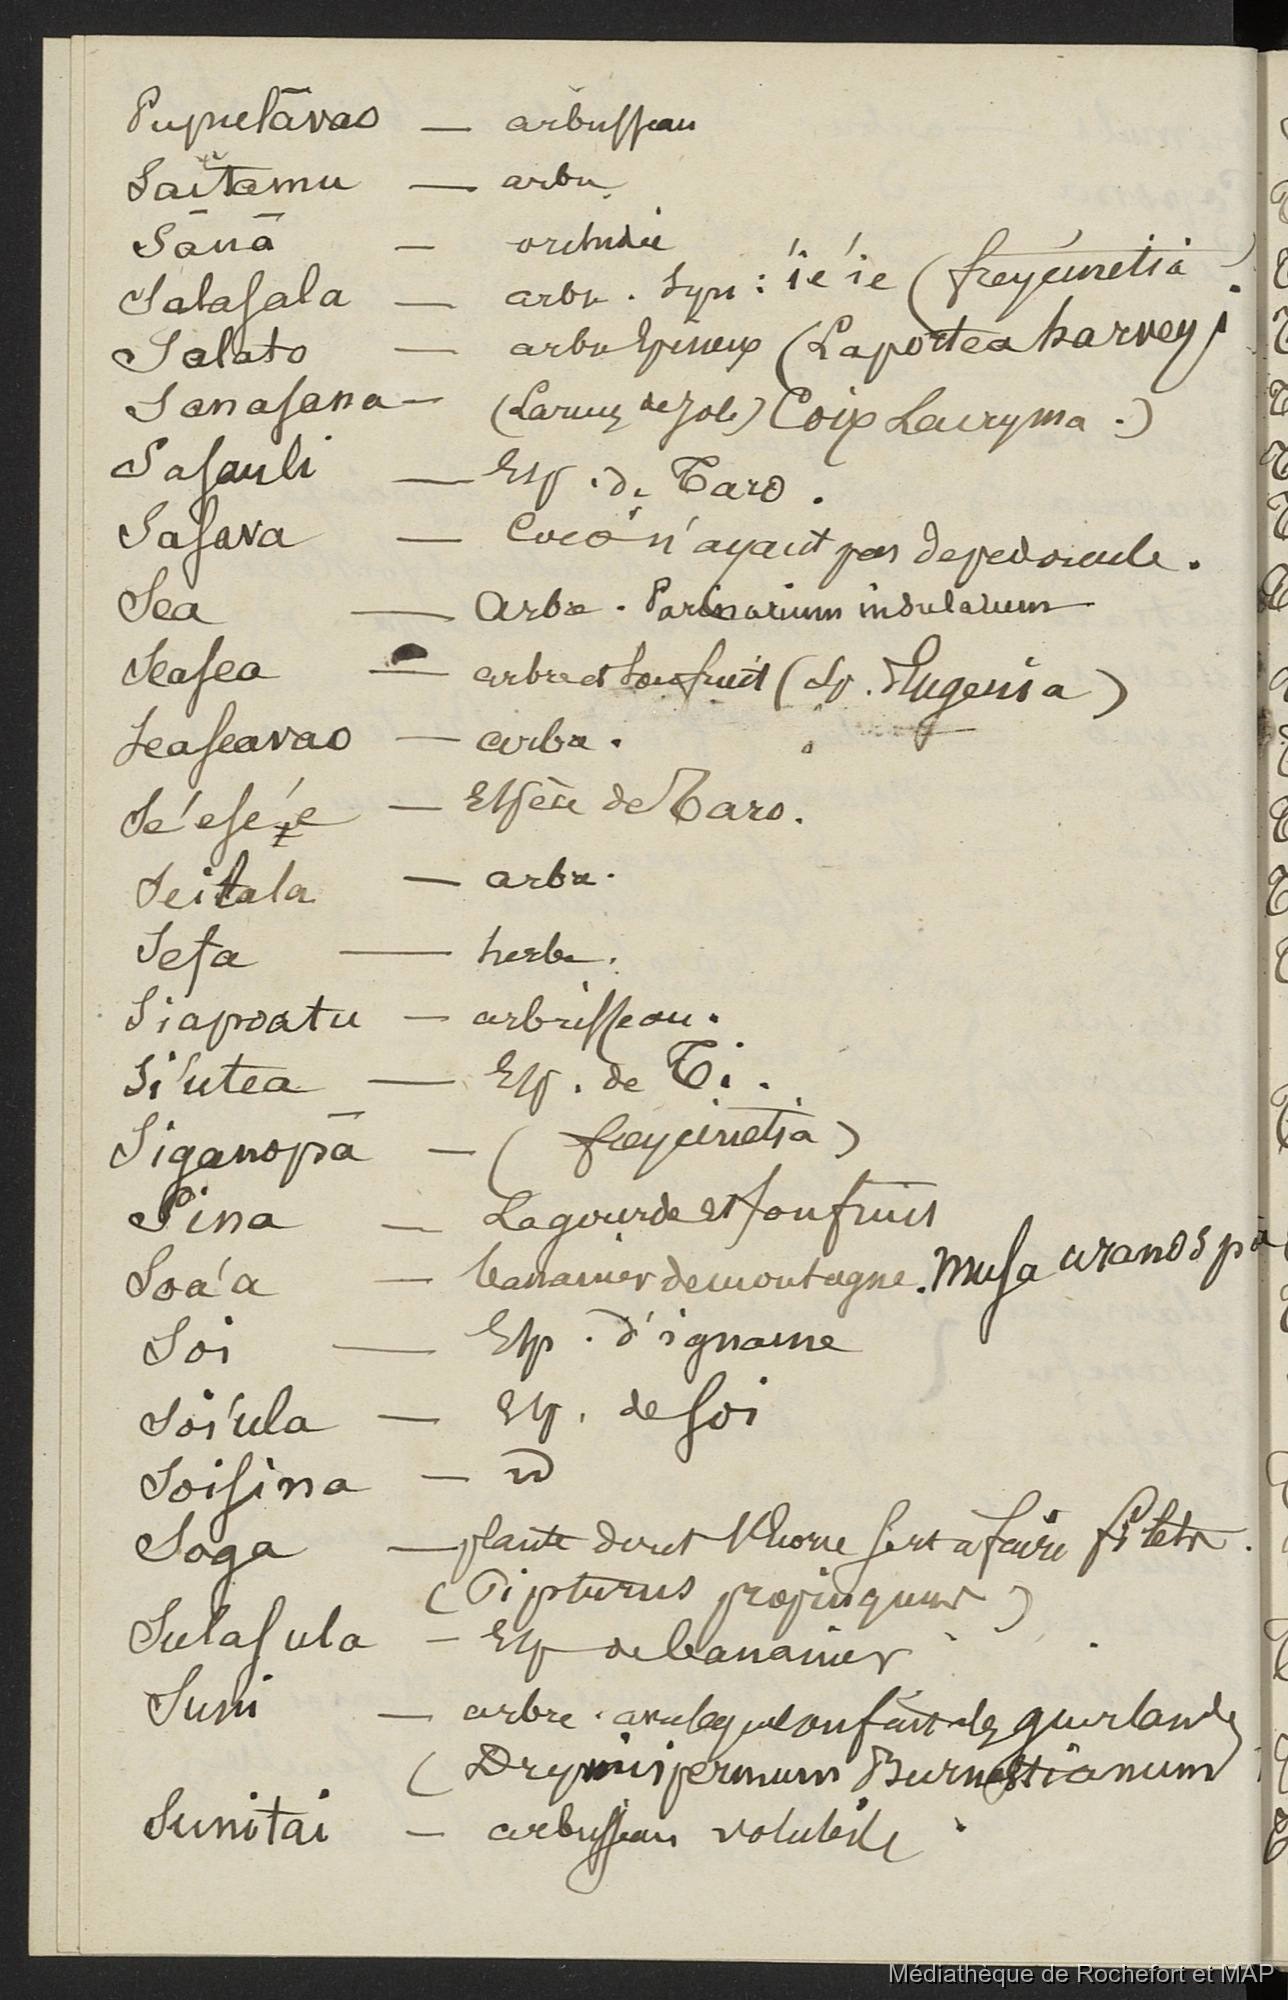 Pupuetāvao — arbrisseau
Saïtamu — arbre
Sānā — orchidée
Salasala — arbre. Syn : 'ie'ie (freycinetia).
Salato — arbre épineux (Laportea harveyi
Sanasana — (Larmes de Job) Coix Lacryma.)
Sasauli — Esp. de Taro.
Sasava — Coco n'ayant pas de pédoncule.
Sea — Arbre. Parinarium insularum
Seasea — arbre et son fruit (Sp. Eugenia)
Seaseavao — arbre.
Se'ese'e — Espèce de Taro.
Seitala — arbre.
Sefa — herbe.
Siapoatu — arbrisseau.
Si'utea — Esp. de Ti.
Siganopā — (freycinetia)
Sina — La gourde et son fruit
Soa'a — bananier de montagne. Musa uranospa
Soi — Esp. d'igname
Soi'ula — Esp. de Soi
Soisina — id
Soga — plante dont l'écorce sert à faire filets.
(Pipturus propinquus)
Sulasula — Esp de bananier
Suni — arbre. avec lequel on fait des guirlandes
(Drymispermum Burnettianum
Sunitai — arbrisseau volubile.
Médiathèque de Rochefort et MAP